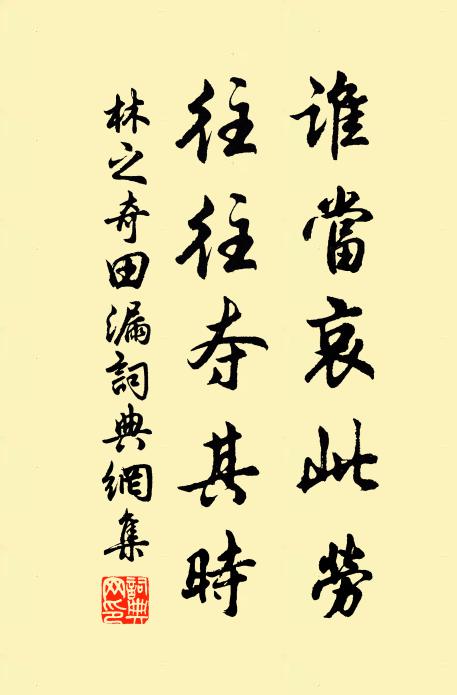 誰當哀此勞
往往夺其時
林之奇田漏詞典網集
詞典网印